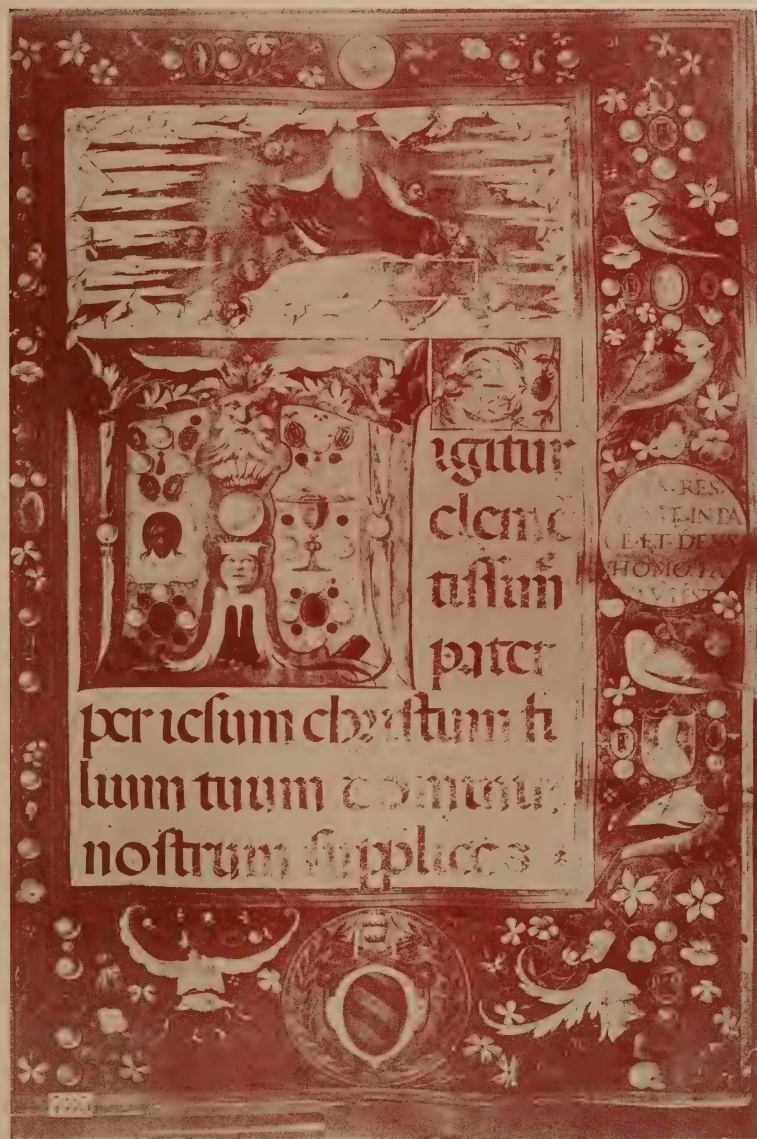 TE
igitur
clemẽ
tissim̃
pater
per iesum christum fi
lium tuum dominum
nostrum supplices
RES
IN PA
CE·ET·DEVS
HOMO·FA
EST